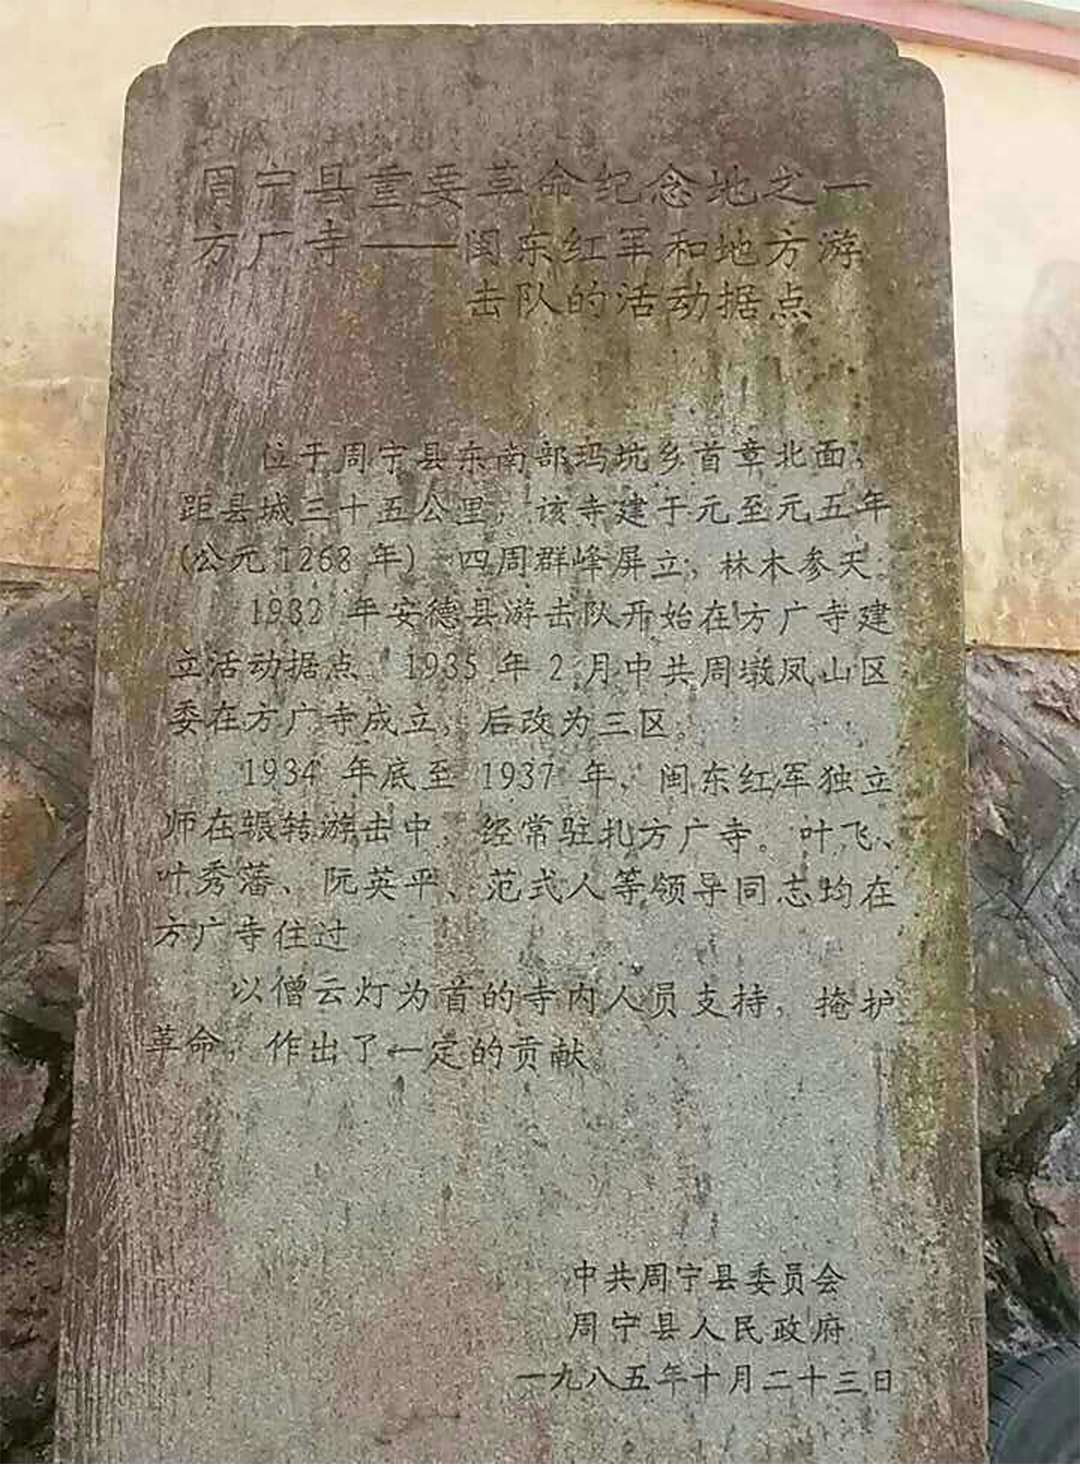 周宁县重要革命纪念地之一
方广寺——闽东红军和地方游
击队的活动据点
位于周宁县东南部玛坑乡首章北面，
距县城三十五公里，该寺建于元至元五年
(公元1268年) 四周群峰屏立，林木参天。
1932年安德县游击队开始在方广寺建
立活动据点 1935年2月中共周墩凤山区
委在方广寺成立，后改为三区。
1934年底至1937年，闽东红军独立
师在辗转游击中，经常驻扎方广寺。叶飞、
叶秀藩、阮英平、范式人等领导同志均在
方广寺住过
以僧云灯为首的寺内人员支持，掩护
革命，作出了一定的贡献。
中共周宁县委员会
周宁县人民政府
一九八五年十月二十三日